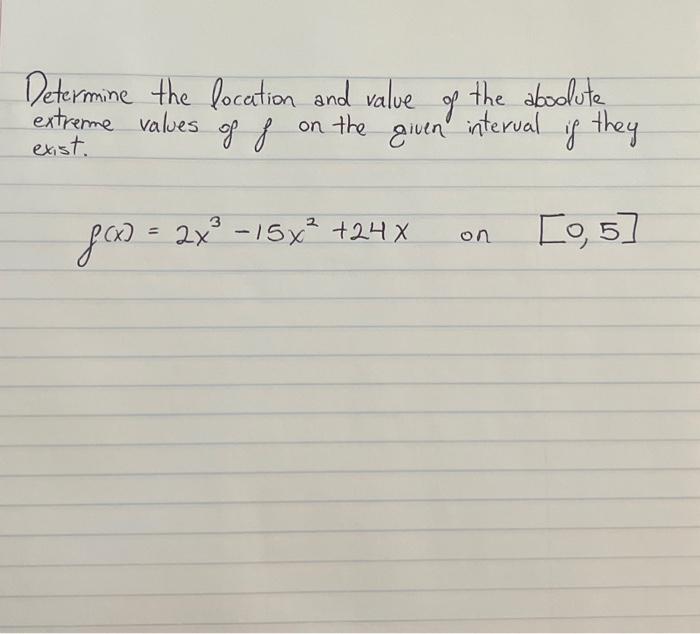 Determine the location and value of the absolute
extreme values of f on the given interval if they
exist.
f(x) = 2x³ -15x² +24x on [0,5]